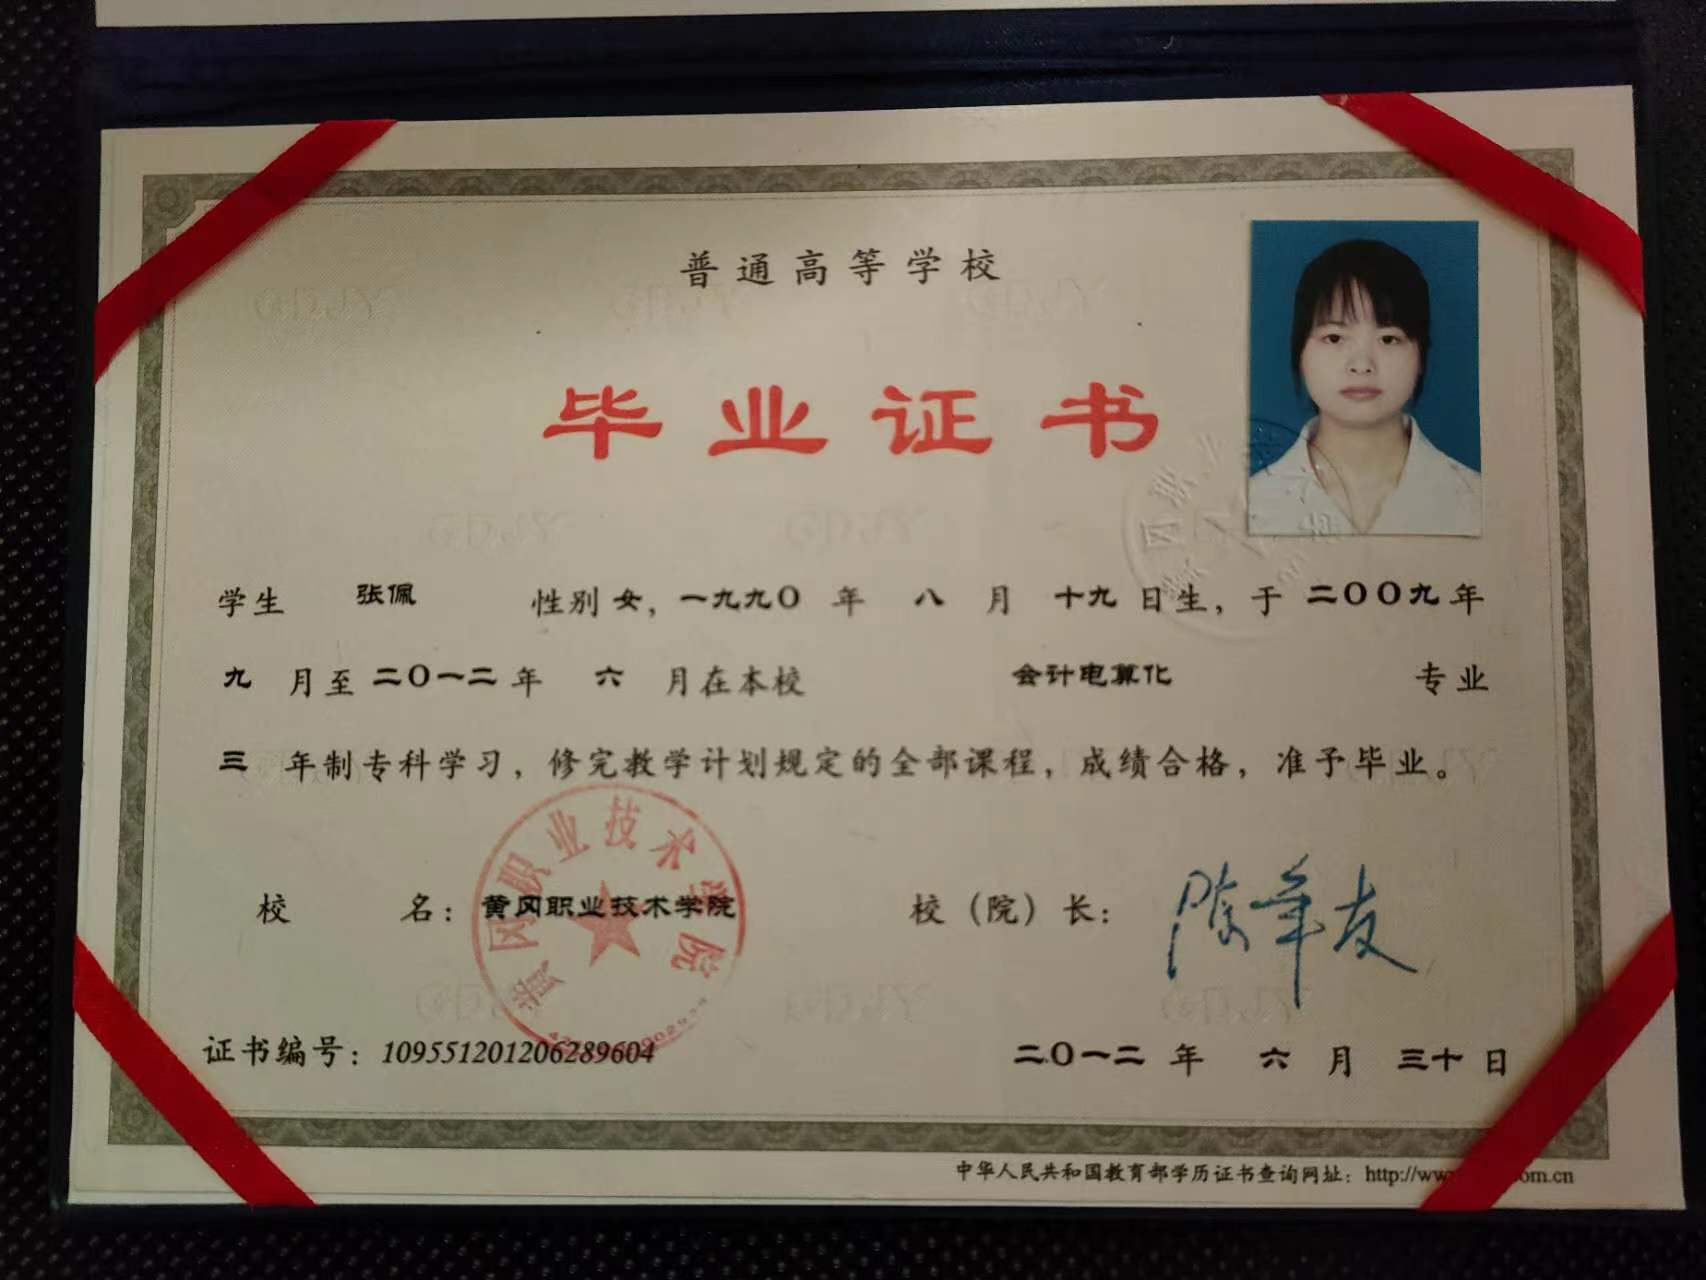 普通高等学校
毕业证书
学生 张佩 性别 女，一九九〇 年 八 月 十九 日生，于 二〇〇九 年
九 月至 二〇一二 年 六 月在本校 会计电算化 专业
三 年制专科学习，修完教学计划规定的全部课程，成绩合格，准予毕业。
校 名：黄冈职业技术学院 校（院）长：陈年友
黄冈职业技术学院
证书编号：109551201206289604 二〇一二 年 六 月 三十 日
中华人民共和国教育部学历证书查询网址：http://www om.cn